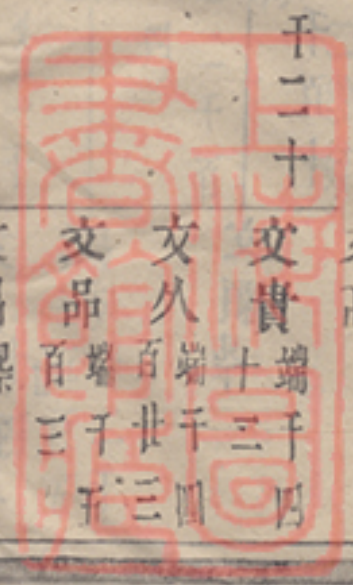 千二十
文貴
端千四
十三
文久
端千四
百廿三
文品
端千五
百三
上海圖
書館藏